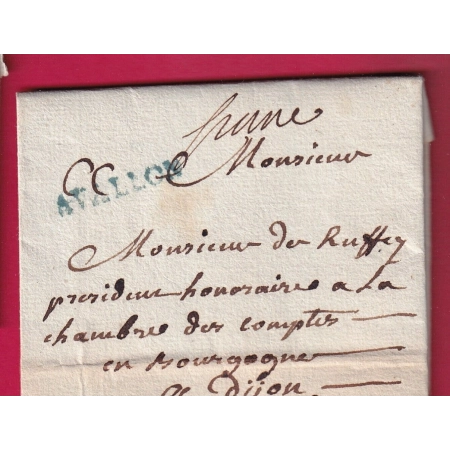 franc
A Monsieur
AVALLON
Monsieur de Ruffey
president honoraire a la
chambre des comptes
en Bourgogne
a Dijon